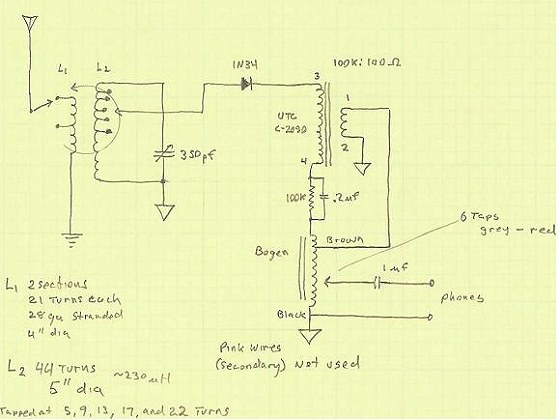 L1 L2
1N34
3
100K:100Ω
1
UTC
2
4
350pf
100K .2uf
6 Taps
grey - red
Brown
Bogen
1uf
phones
Black
L1 2 sections
21 Turns each
28ga Stranded
4" dia
Pink wires
(secondary) Not used
L2 44 Turns ~230uH
5" dia
Tapped at 5, 9, 13, 17, and 22 Turns